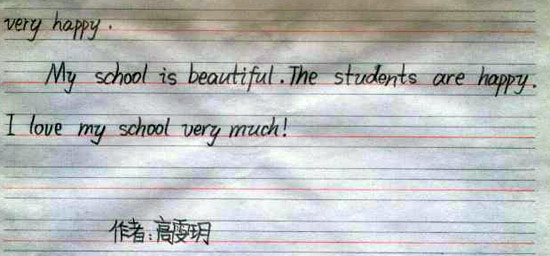 very happy.
My school is beautiful. The students are happy.
I love my school very much!
作者:高雯玥